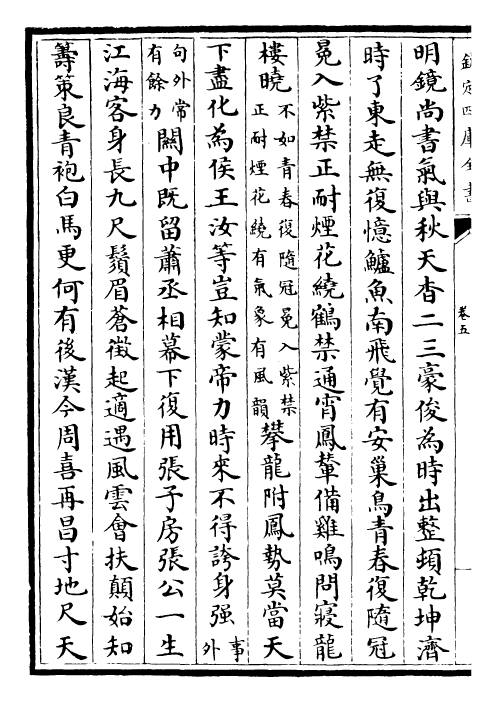 欽定四庫全書
卷五
明鏡尚書氣與秋天杳二三豪俊為時出整頓乾坤濟
時了東走無復憶鱸魚南飛覺有安巢鳥青春復隨冠
冕入紫禁正耐煙花繞鶴禁通宵鳳輦備雞鳴問寢龍
樓曉不如青春復隨冠冕入紫禁正耐煙花繞有氣象有風韻攀龍附鳳勢莫當天
下盡化為侯王汝等豈知蒙帝力時來不得誇身强事外
句外常有餘力關中既留蕭丞相幕下復用張子房張公一生
江海客身長九尺鬚眉蒼徵起適遇風雲會扶顛始知
籌策良青袍白馬更何有後漢今周喜再昌寸地尺天